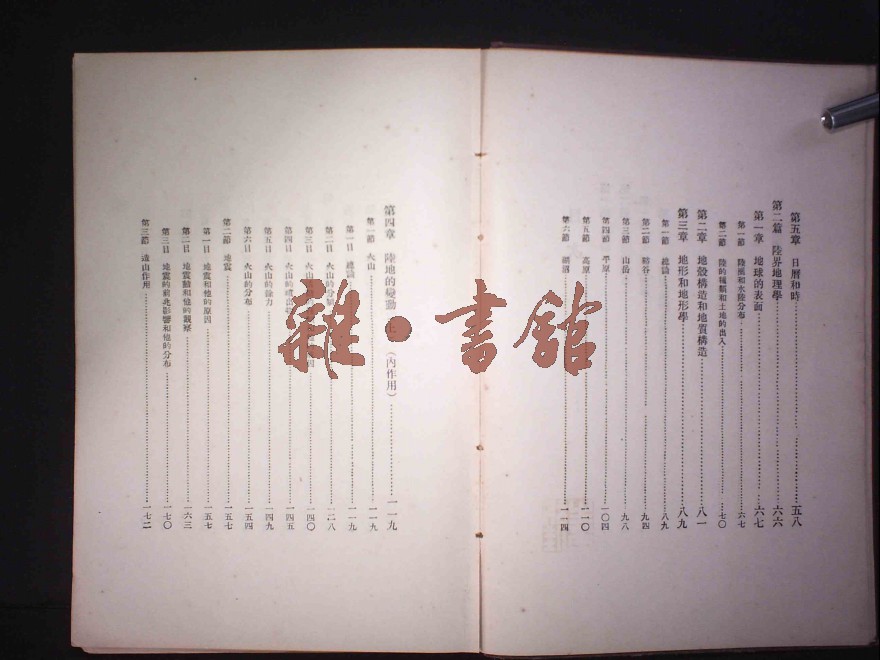 第五章 日曆和時……五八
第二篇 陸界地理學……六六
第一章 地球的表面……六七
第一節 陸風和水陸分布……六七
第二節 陸的種類和土地的出入……七〇
第二章 地殼構造和地質構造……八一
第三章 地形和地形學……八九
第一節 總論……八九
第二節 谿谷……九四
第三節 山岳……九八
第四節 平原……一〇四
第五節 高原……一一〇
第六節 湖沼……一一四
第四章 陸地的變動 上（內作用）……一一九
第一節 火山……一一九
第一目 總論……一一九
第二目 火山的分類……一二八
第三目 火山……一四〇
第四目 火山的噴出……一四五
第五目 火山的餘力……一四九
第六目 火山的分布……一五四
第二節 地震……一五七
第一目 地震和他的原因……一五七
第二目 地震動和他的觀察……一六三
第三目 地震的前兆影響和他的分布……一七〇
第三節 造山作用……一七二
雜·書館